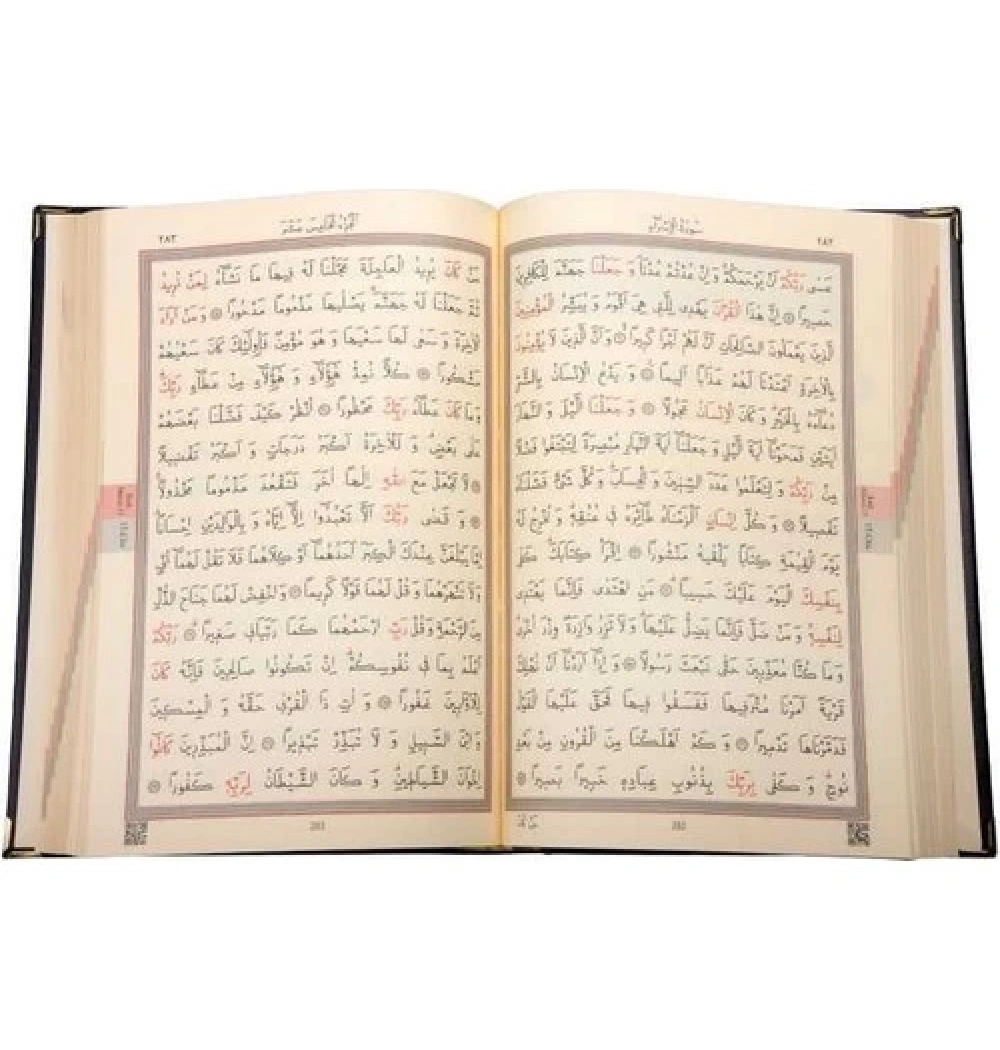 ٢٨٢
سورة الإسراء
عَسٰى رَبُّكُمْ اَنْ يَرْحَمَكُمْ وَ اِنْ عُدْتُمْ عُدْنَا وَ جَعَلْنَا جَهَنَّمَ لِلْكَافِرِينَ
حَصِيراً ۞ اِنَّ هٰذَا الْقُرْاٰنَ يَهْدِى لِلَّتِى هِىَ اَقْوَمُ وَ يُبَشِّرُ الْمُؤْمِنِينَ
الَّذِينَ يَعْمَلُونَ الصَّالِحَاتِ اَنَّ لَهُمْ اَجْراً كَبِيراً ۞ وَ اَنَّ الَّذِينَ لَا يُؤْمِنُونَ
بِالْاٰخِرَةِ اَعْتَدْنَا لَهُمْ عَذَاباً اَلِيماً ۞ وَ يَدْعُ الْاِنْسَانُ بِالشَّرِّ
دُعَٓاءَهُ بِالْخَيْرِ وَ كَانَ الْاِنْسَانُ عَجُولاً ۞ وَ جَعَلْنَا الَّيْلَ وَ النَّهَارَ
اٰيَتَيْنِ فَمَحَوْنَا اٰيَةَ الَّيْلِ وَ جَعَلْنَا اٰيَةَ النَّهَارِ مُبْصِرَةً لِتَبْتَغُوا فَضْلاً
مِنْ رَبِّكُمْ وَ لِتَعْلَمُوا عَدَدَ السِّنِينَ وَ الْحِسَابَ وَ كُلَّ شَىْءٍ فَصَّلْنَاهُ
تَفْصِيلاً ۞ وَ كُلَّ اِنْسَانٍ اَلْزَمْنَاهُ طَٓائِرَهُ فِى عُنُقِهِ وَ نُخْرِجُ لَهُ
يَوْمَ الْقِيٰمَةِ كِتَاباً يَلْقٰيهُ مَنْشُوراً ۞ اِقْرَأْ كِتَابَكَ كَفٰى
بِنَفْسِكَ الْيَوْمَ عَلَيْكَ حَسِيباً ۞ مَنِ اهْتَدٰى فَاِنَّمَا يَهْتَدِى
لِنَفْسِهِ وَ مَنْ ضَلَّ فَاِنَّمَا يَضِلُّ عَلَيْهَا وَ لَا تَزِرُ وَازِرَةٌ وِزْرَ اُخْرٰى
وَ مَا كُنَّا مُعَذِّبِينَ حَتّٰى نَبْعَثَ رَسُولاً ۞ وَ اِذَٓا اَرَدْنَٓا اَنْ نُهْلِكَ
قَرْيَةً اَمَرْنَا مُتْرَفِيهَا فَفَسَقُوا فِيهَا فَحَقَّ عَلَيْهَا الْقَوْلُ
فَدَمَّرْنَاهَا تَدْمِيراً ۞ وَ كَمْ اَهْلَكْنَا مِنَ الْقُرُونِ مِنْ بَعْدِ
نُوحٍ وَ كَفٰى بِرَبِّكَ بِذُنُوبِ عِبَادِهِ خَبِيراً بَصِيراً ۞
282
٢٨٣
الجزء الخامس عشر
مَنْ كَانَ يُرِيدُ الْعَاجِلَةَ عَجَّلْنَا لَهُ فِيهَا مَا نَشَٓاءُ لِمَنْ نُرِيدُ
ثُمَّ جَعَلْنَا لَهُ جَهَنَّمَ يَصْلٰيهَا مَذْمُوماً مَدْحُوراً ۞ وَ مَنْ اَرَادَ
الْاٰخِرَةَ وَ سَعٰى لَهَا سَعْيَهَا وَ هُوَ مُؤْمِنٌ فَاُولٰٓئِكَ كَانَ سَعْيُهُمْ
مَشْكُوراً ۞ كُلًّا نُمِدُّ هٰٓؤُلَٓاءِ وَ هٰٓؤُلَٓاءِ مِنْ عَطَٓاءِ رَبِّكَ
وَ مَا كَانَ عَطَٓاءُ رَبِّكَ مَحْظُوراً ۞ اُنْظُرْ كَيْفَ فَضَّلْنَا بَعْضَهُمْ
عَلٰى بَعْضٍ وَ لَلْاٰخِرَةُ اَكْبَرُ دَرَجَاتٍ وَ اَكْبَرُ تَفْضِيلاً
۞ لَا تَجْعَلْ مَعَ اللّٰهِ اِلٰهاً اٰخَرَ فَتَقْعُدَ مَذْمُوماً مَخْذُولاً
۞ وَ قَضٰى رَبُّكَ اَلَّا تَعْبُدُٓوا اِلَّٓا اِيَّاهُ وَ بِالْوَالِدَيْنِ اِحْسَاناً
اِمَّا يَبْلُغَنَّ عِنْدَكَ الْكِبَرَ اَحَدُهُمَٓا اَوْ كِلَاهُمَا فَلَا تَقُلْ لَهُمَٓا اُفٍّ
وَ لَا تَنْهَرْهُمَا وَ قُلْ لَهُمَا قَوْلاً كَرِيماً ۞ وَ اخْفِضْ لَهُمَا جَنَاحَ الذُّلِّ
مِنَ الرَّحْمَةِ وَ قُلْ رَبِّ ارْحَمْهُمَا كَمَا رَبَّيَانِى صَغِيراً ۞ رَبُّكُمْ
اَعْلَمُ بِمَا فِى نُفُوسِكُمْ اِنْ تَكُونُوا صَالِحِينَ فَاِنَّهُ كَانَ
لِلْاَوَّابِينَ غَفُوراً ۞ وَ اٰتِ ذَا الْقُرْبٰى حَقَّهُ وَ الْمِسْكِينَ
وَ ابْنَ السَّبِيلِ وَ لَا تُبَذِّرْ تَبْذِيراً ۞ اِنَّ الْمُبَذِّرِينَ كَانُٓوا
اِخْوَانَ الشَّيَاطِينِ وَ كَانَ الشَّيْطَانُ لِرَبِّهِ كَفُوراً ۞
283